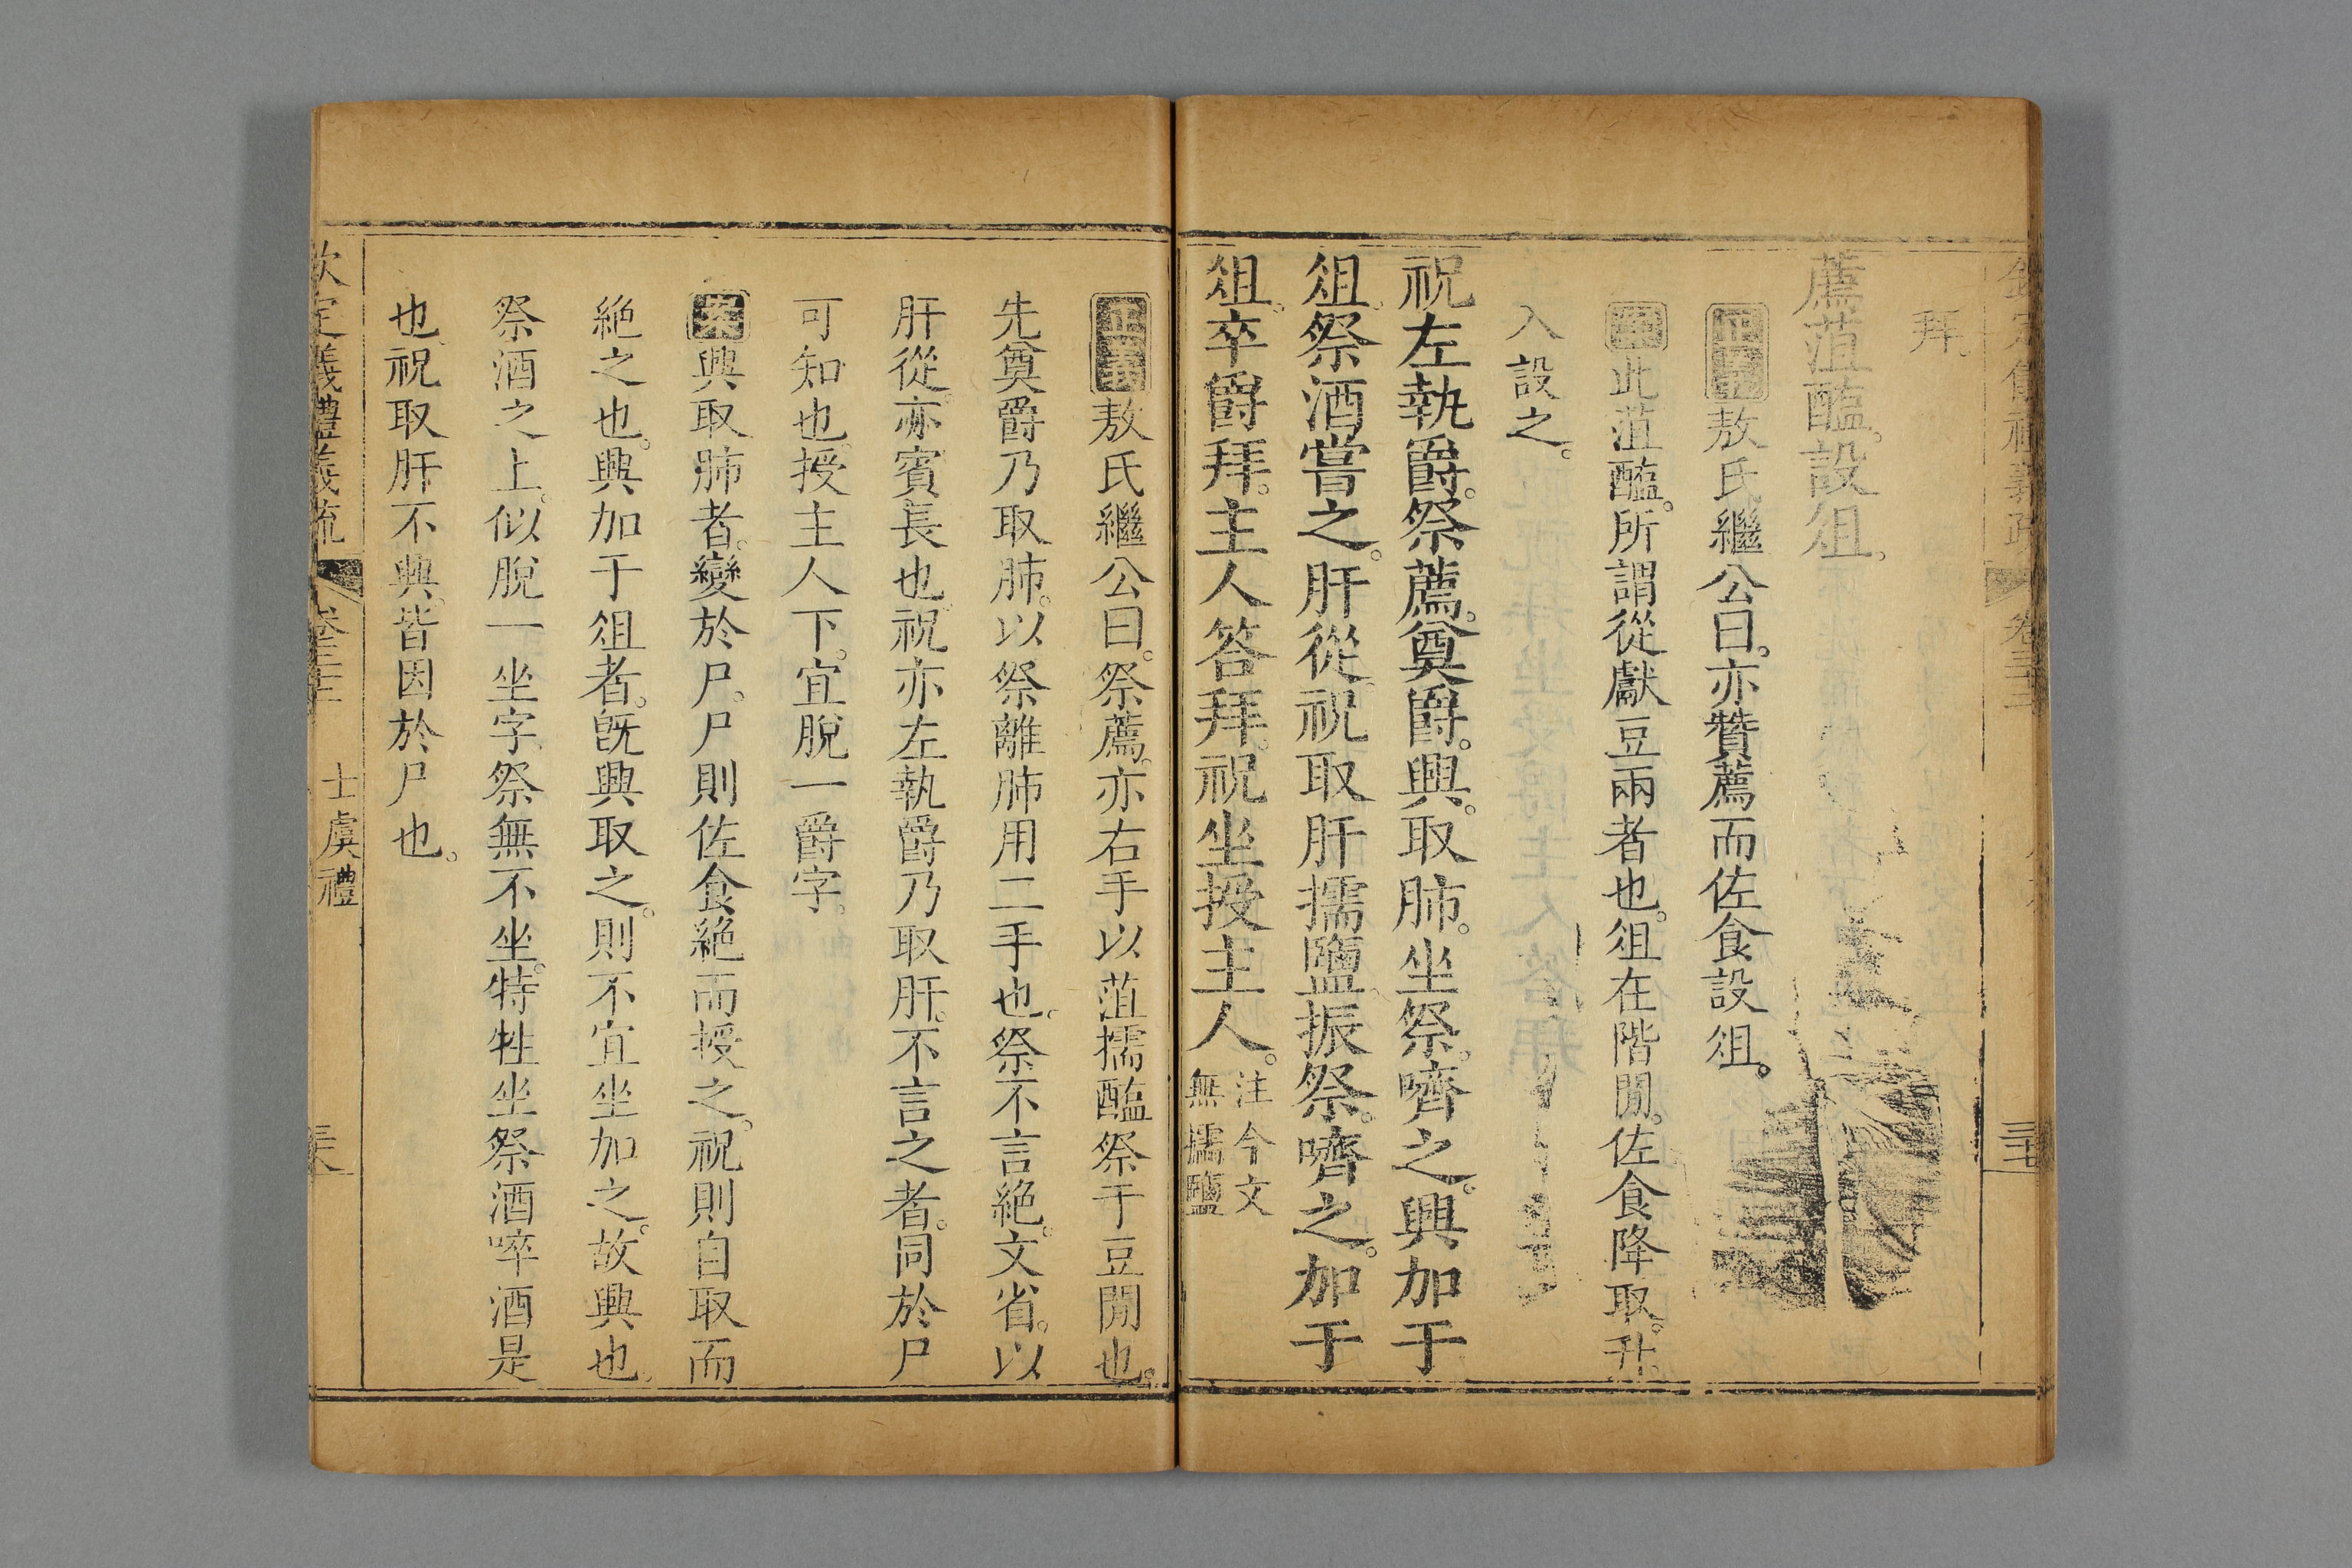 拜。
薦菹醢。設俎。
正義敖氏繼公曰。亦贊薦而佐食設俎。
案此菹醢。所謂從獻豆兩者也。俎在階閒。佐食降取。升。
入設之。
祝左執爵。祭薦。奠爵。興。取肺。坐祭。嚌之。興加于
俎。祭酒嘗之。肝從。祝取肝擩鹽。振祭。嚌之。加于
俎。卒爵拜。主人答拜。祝坐授主人。注今文
無擩鹽
正義敖氏繼公曰。祭薦。亦右手以菹擩醢祭于豆閒也。
先奠爵乃取肺。以祭離肺用二手也。祭不言絕。文省。以
肝從。亦賓長也。祝亦左執爵乃取肝。不言之者。同於尸
可知也。授主人下。宜脫一爵字。
案興取肺者。變於尸。尸則佐食絕而授之。祝則自取而
絕之也。興加于俎者。旣興取之。則不宜坐加之。故興也。
祭酒之上。似脫一坐字。祭無不坐。特牲坐祭酒啐酒是
也。祝取肝不興。皆因於尸也。
欽定義禮義疏 卷三十三 士虞禮